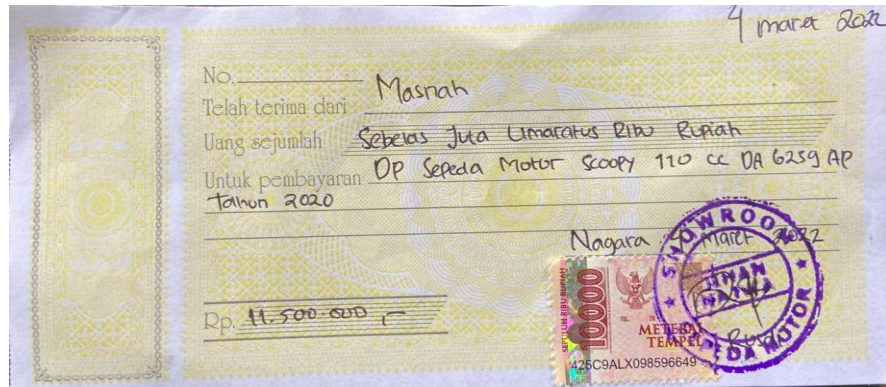 4 maret 2022
No.
Telah terima dari Masnah
Uang sejumlah Sebelas Juta Limaratus Ribu Rupiah
Untuk pembayaran DP Sepeda Motor Scoopy 110 cc DA 6259 AP
Tahun 2020
Nagara Maret 2022
SHOWROOM
SEPEDA MOTOR
SEPULUH RIBU RUPIAH
10000
TGL. 20
METERAI
TEMPEL
425C9ALX098596649
Rusdi
Rp. 11.500.000,-